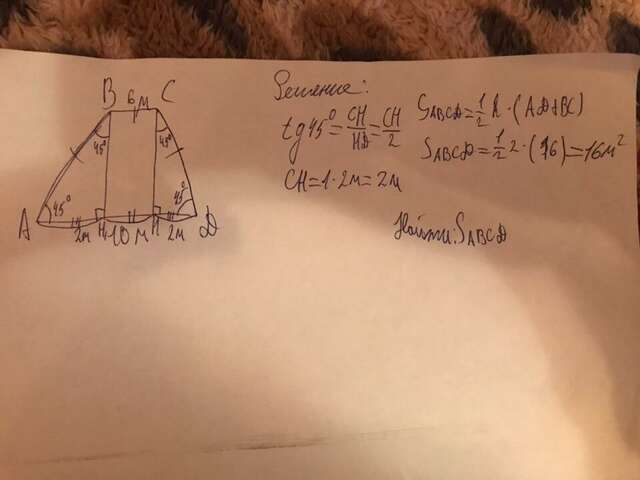 B 6 м C
45° 45°
45° 45°
A 2м H 10 м H 2м D
Решение:
tg45°=CH/HD=CH/2
CH=1·2м=2м
SABCD=1/2 h·(AD+BC)
SABCD=1/2 2·(16)=16м²
Найти:SABCD